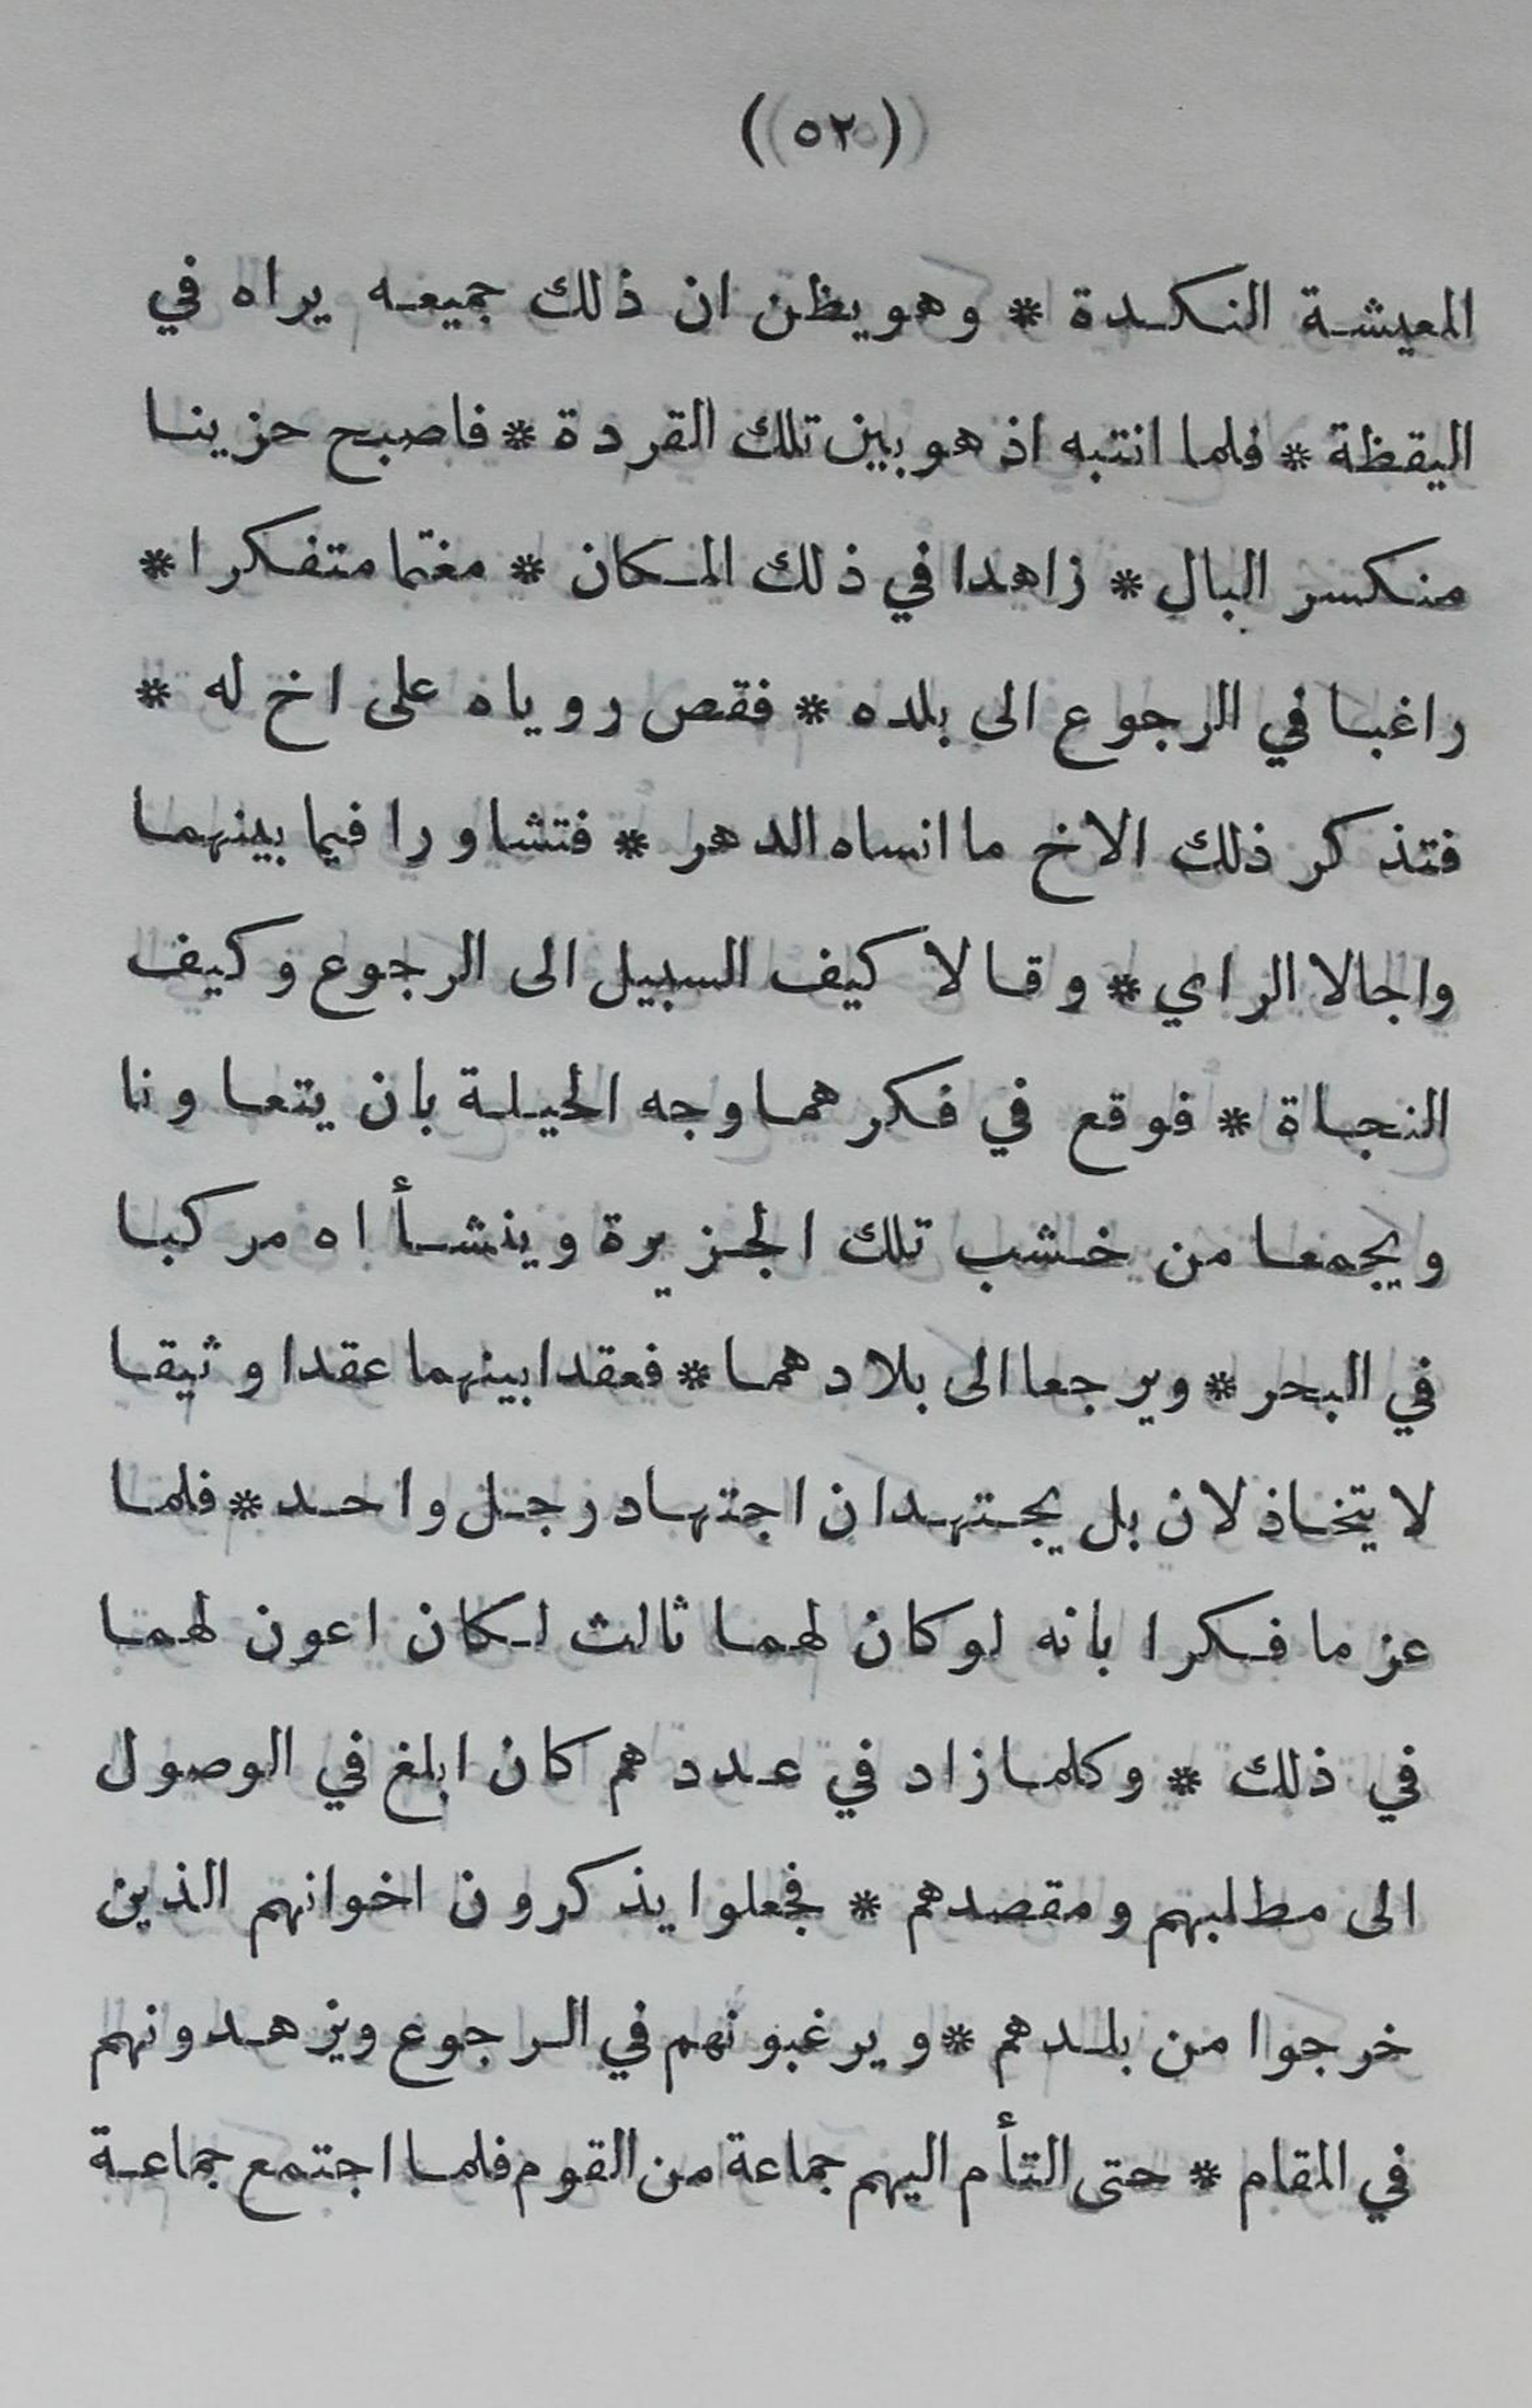 (٥٢)
المعيشة النكدة * وهو يظن ان ذلك جميعه يراه في
اليقظة * فلما انتبه اذ هو بين تلك القردة * فاصبح حزينا
منكسر البال * زاهدا في ذلك المكان * مغتما متفكرا *
راغبا في الرجوع الى بلده * فقص روياه على اخ له *
فتذكر ذلك الاخ ما انساه الدهر * فتشاورا فيما بينهما
واجالا الراي * وقالا كيف السبيل الى الرجوع وكيف
النجاة * فوقع في فكرهما وجه الحيلة بان يتعاونا
ويجمعا من خشب تلك الجزيرة وينشأاه مركبا
في البحر * ويرجعا الى بلادهما * فعقدا بينهما عقدا وثيقا
لا يتخاذلان بل يجتهدان اجتهاد رجل واحد * فلما
عزما فكرا بانه لو كان لهما ثالث لكان اعون لهما
في ذلك * وكلما زاد في عددهم كان ابلغ في الوصول
الى مطلبهم ومقصدهم * فجعلوا يذكرون اخوانهم الذين
خرجوا من بلدهم * ويرغبونهم في الرجوع ويزهدونهم
في المقام * حتى التأم اليهم جماعة من القوم فلما اجتمع جماعة